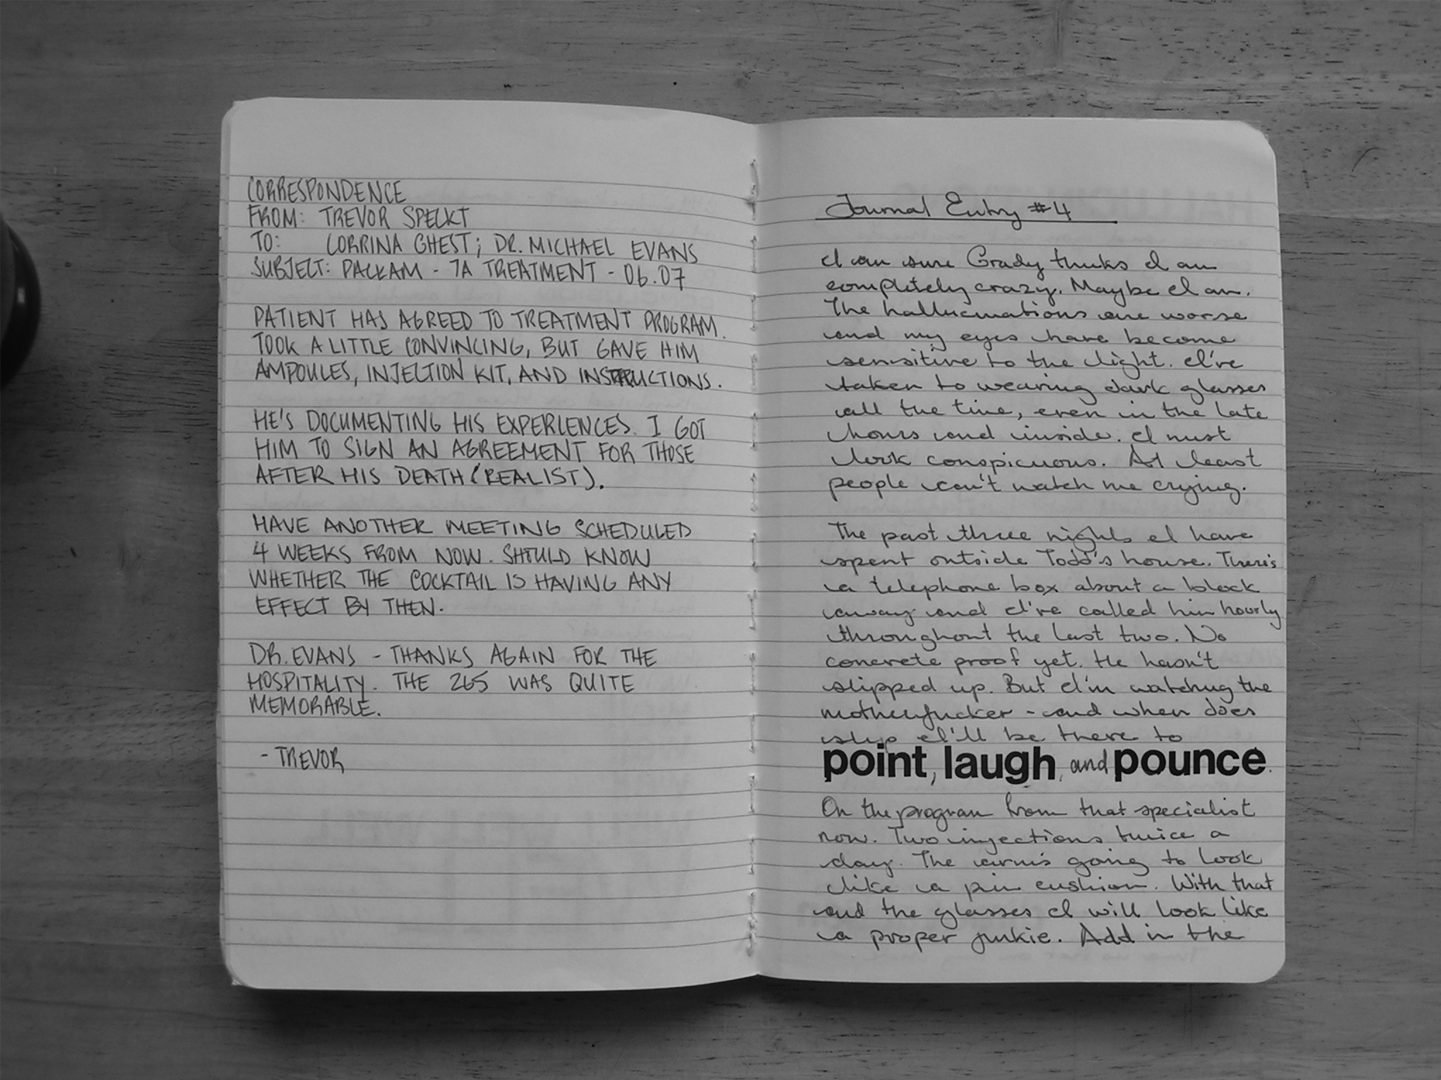 CORRESPONDENCE
FROM: TREVOR SPECKT
TO: CORRINA GHEST; DR. MICHAEL EVANS
SUBJECT: PACKAM - 7A TREATMENT - 06.07
PATIENT HAS AGREED TO TREATMENT PROGRAM.
TOOK A LITTLE CONVINCING, BUT GAVE HIM
AMPOULES, INJECTION KIT, AND INSTRUCTIONS.
HE'S DOCUMENTING HIS EXPERIENCES. I GOT
HIM TO SIGN AN AGREEMENT FOR THOSE
AFTER HIS DEATH (REALIST).
HAVE ANOTHER MEETING SCHEDULED
4 WEEKS FROM NOW. SHOULD KNOW
WHETHER THE COCKTAIL IS HAVING ANY
EFFECT BY THEN.
DR. EVANS - THANKS AGAIN FOR THE
HOSPITALITY. THE 265 WAS QUITE
MEMORABLE.
- TREVOR
Journal Entry #4
I am sure Grady thinks I am
completely crazy. Maybe I am.
The hallucinations are worse
and my eyes have become
sensitive to the light. I've
taken to wearing dark glasses
all the time, even in the late
hours and inside. I must
look conspicuous. At least
people can't watch me crying.
The past three nights I have
spent outside Todd's house. There's
a telephone box about a block
away and I've called him hourly
throughout the last two. No
concrete proof yet. He hasn't
slipped up. But I'm watching the
motherfucker - and when does
slip I'll be there to
point, laugh, and pounce.
On the program from that specialist
now. Two injections twice a
day. The arm's going to look
like a pin cushion. With that
and the glasses I will look like
a proper junkie. Add in the